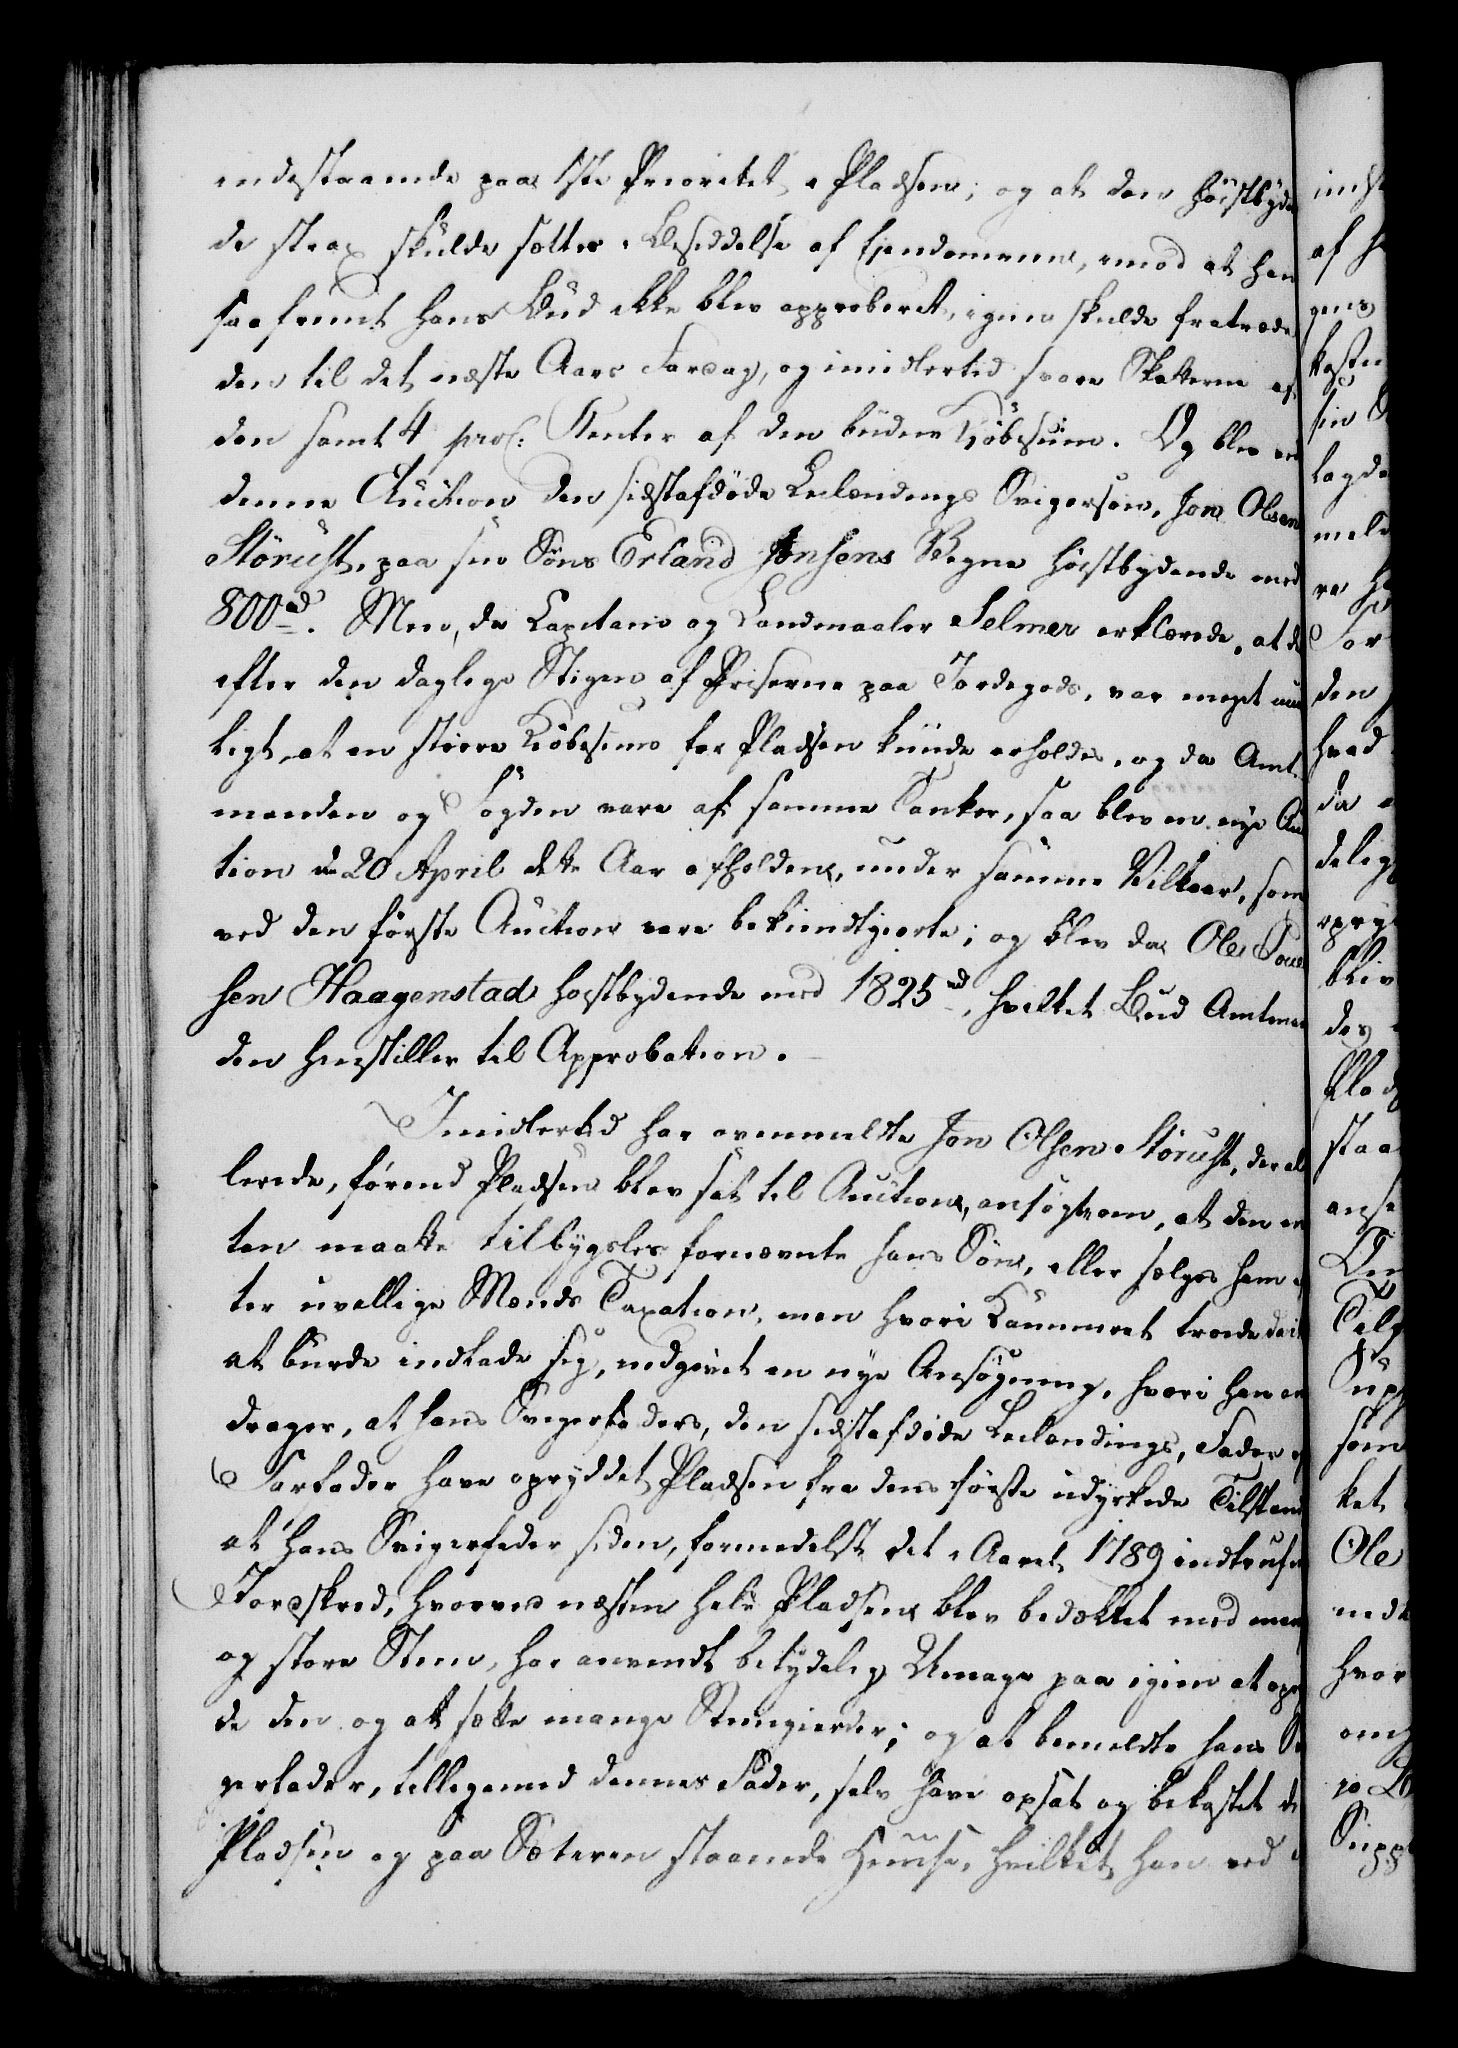 indestaaende paa 1ste Prioritet i Pladsen; og at den høistbyden
de strax skulde sættes i Besiddelse af Ejendommen, imod at han
saafremt hans Bud ikke blev approberet, igien skulde fratræde
den til det næste Aars Fardag, og imidlertid svare Skatterne af
den samt 4 proC: Renter af den budne Kiöbesum. Og blev ved
denne Auction den sidstafdöde Leilændings Svigersön, Jon Olsen
Störust, paa sin Söns Erland Jonsens Vegne höistbydende med
800rd. Men, da Capitain og Landmaaler Selmer erklærede, at det
efter den daglige Stigen af Priserne paa Jordegods, var meget rime
ligt, at en större Kiöbesum for Pladsen kunde erholdes, og da Amt-
manden og Fogden vare af samme Tanker, saa blev en nye Auc
tion den 20 April dette Aar afholden, under samme Vilkaar, som
ved den förste Auction vare bekiendtgiorte; og blev da Ole Poul
sen Haagenstad höistbydende med 1825rd, hvilket Bud Amtman
den henstiller til Approbation.
Imidlertid har ovenmeldte Jon Olsen Störust, der al
lerede, förend Pladsen blev sat til Auction, ansögte om, at den en
ten maatte tilbygsles fornævnte hans Sön, eller sælges ham ef
ter uvillige Mænds Taxation, men hvori Kammeret troede ei
at burde indlade sig, indgivet en nye Ansögning, hvori han an
drager, at hans Svigerfaders, den sidstafdöde Leilændings, Fader og
Farfader have opryddet Pladsen fra dens förste udyrkede Tilstand
at hans Svigerfader siden, formedelst det i Aaret 1789 indtrufne
Jordskred, hvorved næsten hele Pladsen blev bedækket med mange
og store Stene, har anvendt betydelig Umage paa igien at opryd
de den og at sætte mange Steengierder; og at bemeldte hans Svi
gerfader, tilligemed dennes Fader, selv have opsat og bekostet de
Pladsen og paa Sæteren staaende Huuse, hvilket han ved